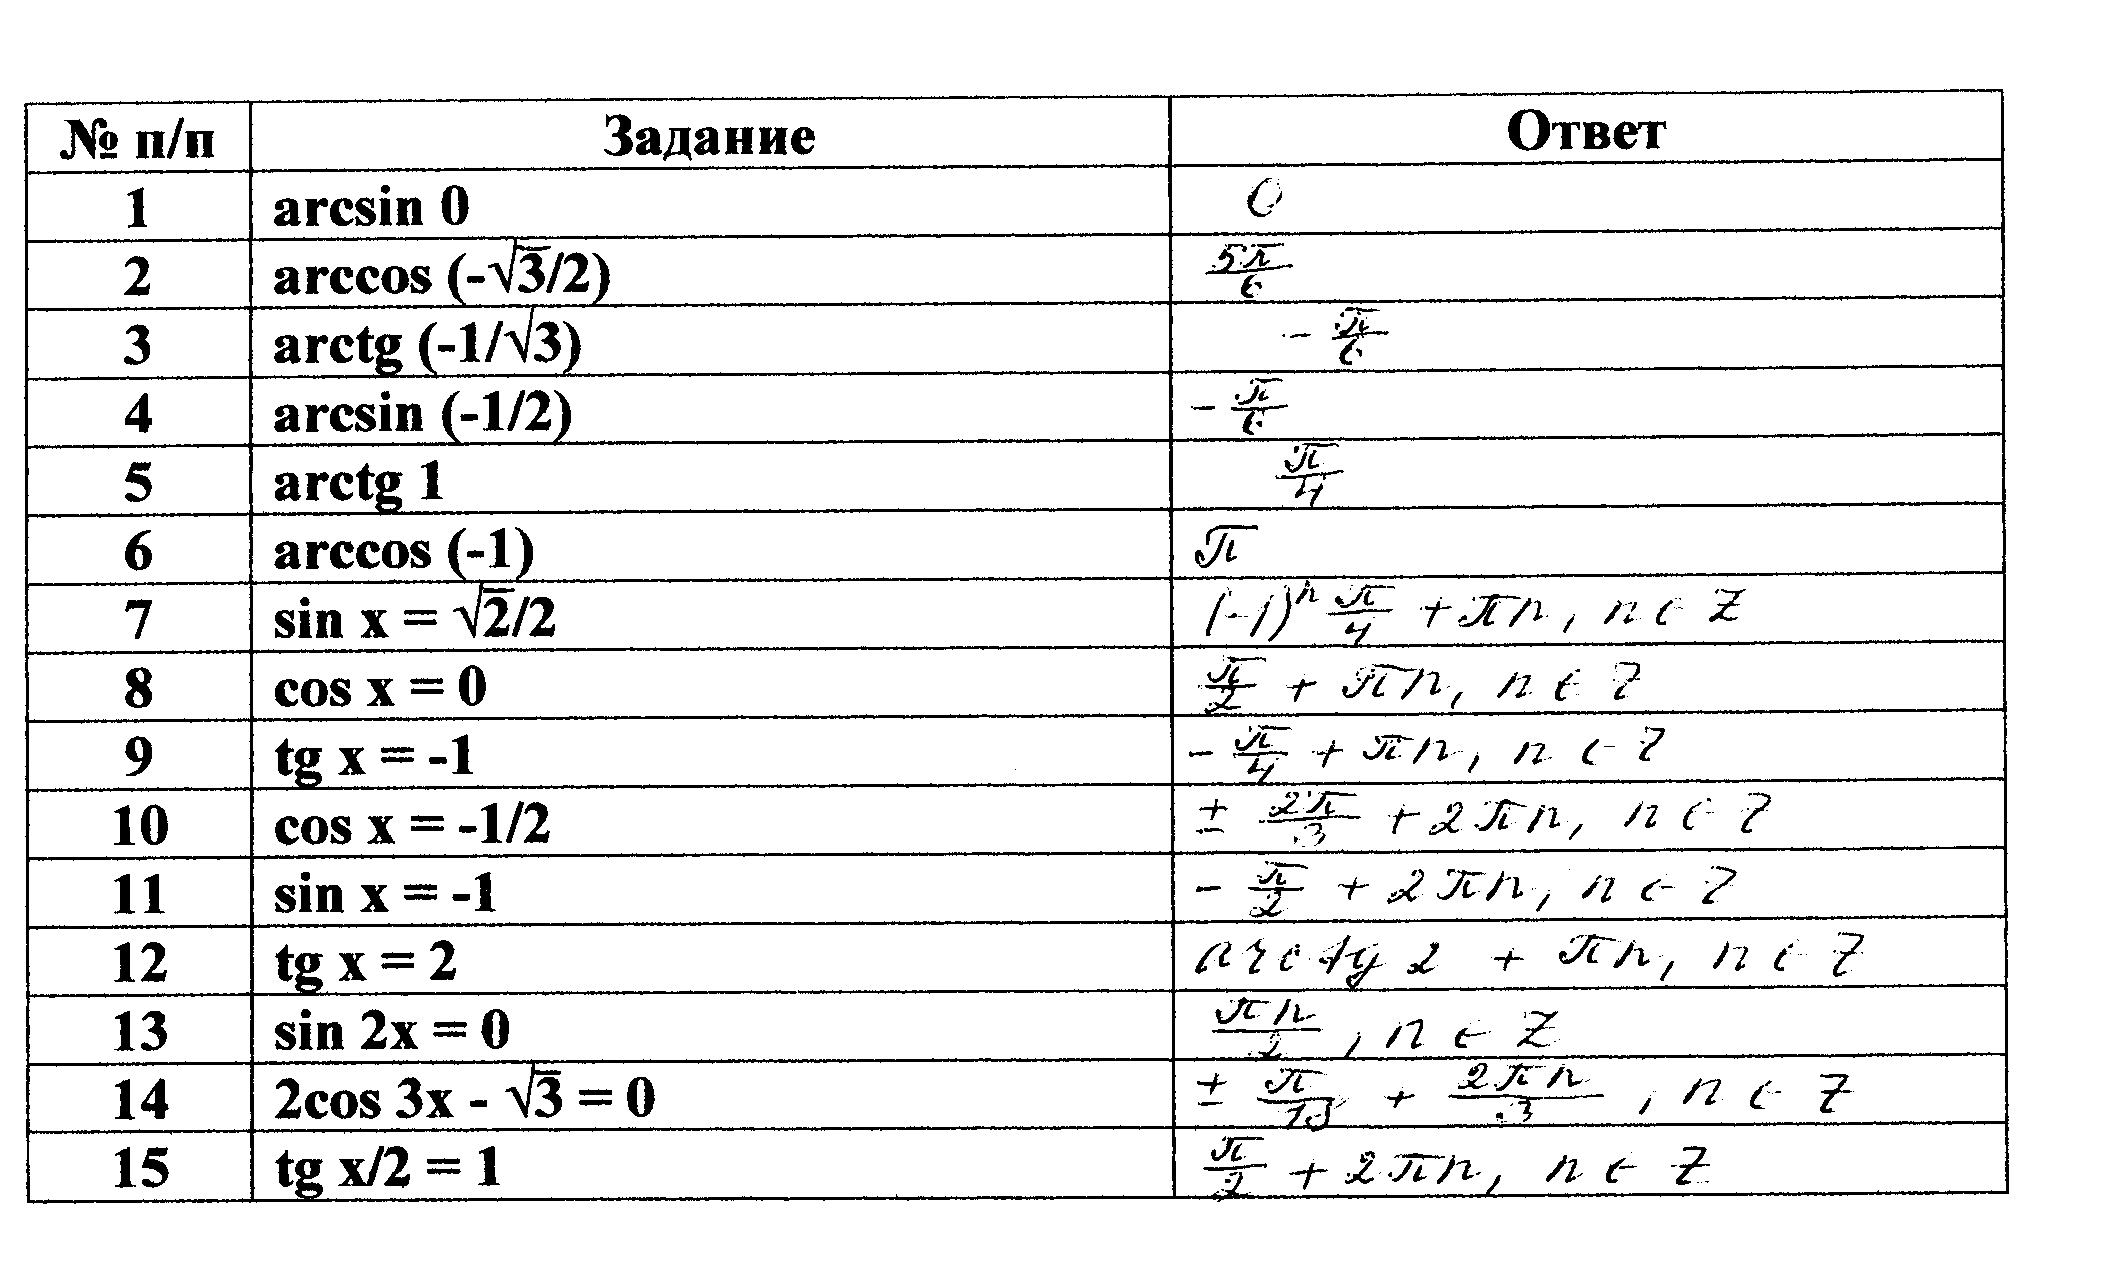 № п/п Задание Ответ
1 arcsin 0 0
2 arccos (-√3/2) 5π/6
3 arctg (-1/√3) - π/6
4 arcsin (-1/2) - π/6
5 arctg 1 π/4
6 arccos (-1) π
7 sin x = √2/2 (-1)ⁿ π/4 + πn, n ∈ Z
8 cos x = 0 π/2 + πn, n ∈ Z
9 tg x = -1 - π/4 + πn, n ∈ Z
10 cos x = -1/2 ± 2π/3 + 2πn, n ∈ Z
11 sin x = -1 - π/2 + 2πn, n ∈ Z
12 tg x = 2 arctg 2 + πn, n ∈ Z
13 sin 2x = 0 πn/2, n ∈ Z
14 2cos 3x - √3 = 0 ± π/18 + 2πn/3, n ∈ Z
15 tg x/2 = 1 π/2 + 2πn, n ∈ Z